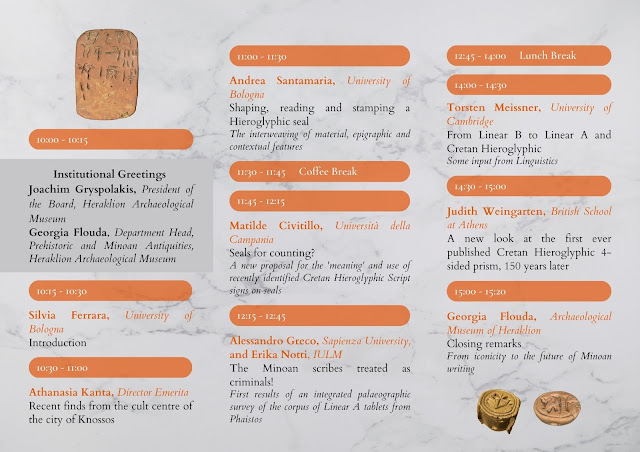 10:00 - 10:15
Institutional Greetings
Joachim Gryspolakis, President of
the Board, Heraklion Archaeological
Museum
Georgia Flouda, Department Head,
Prehistoric and Minoan Antiquities,
Heraklion Archaeological Museum
10:15 - 10:30
Silvia Ferrara, University of
Bologna
Introduction
10:30 - 11:00
Athanasia Kanta, Director Emerita
Recent finds from the cult centre of
the city of Knossos
11:00 - 11:30
Andrea Santamaria, University of
Bologna
Shaping, reading and stamping a
Hieroglyphic seal
The interweaving of material, epigraphic and
contextual features
11:30 - 11:45 Coffee Break
11:45 - 12:15
Matilde Civitillo, Università della
Campania
Seals for counting?
A new proposal for the 'meaning' and use of
recently identified Cretan Hieroglyphic Script
signs on seals
12:15 - 12:45
Alessandro Greco, Sapienza University,
and Erika Notti, IULM
The Minoan scribes treated as
criminals!
First results of an integrated palaeographic
survey of the corpus of Linear A tablets from
Phaistos
12:45 - 14:00 Lunch Break
14:00 - 14:30
Torsten Meissner, University of
Cambridge
From Linear B to Linear A and
Cretan Hieroglyphic
Some input from Linguistics
14:30 - 15:00
Judith Weingarten, British School
at Athens
A new look at the first ever
published Cretan Hieroglyphic 4-
sided prism, 150 years later
15:00 - 15:20
Georgia Flouda, Archaeological
Museum of Heraklion
Closing remarks
From iconicity to the future of Minoan
writing